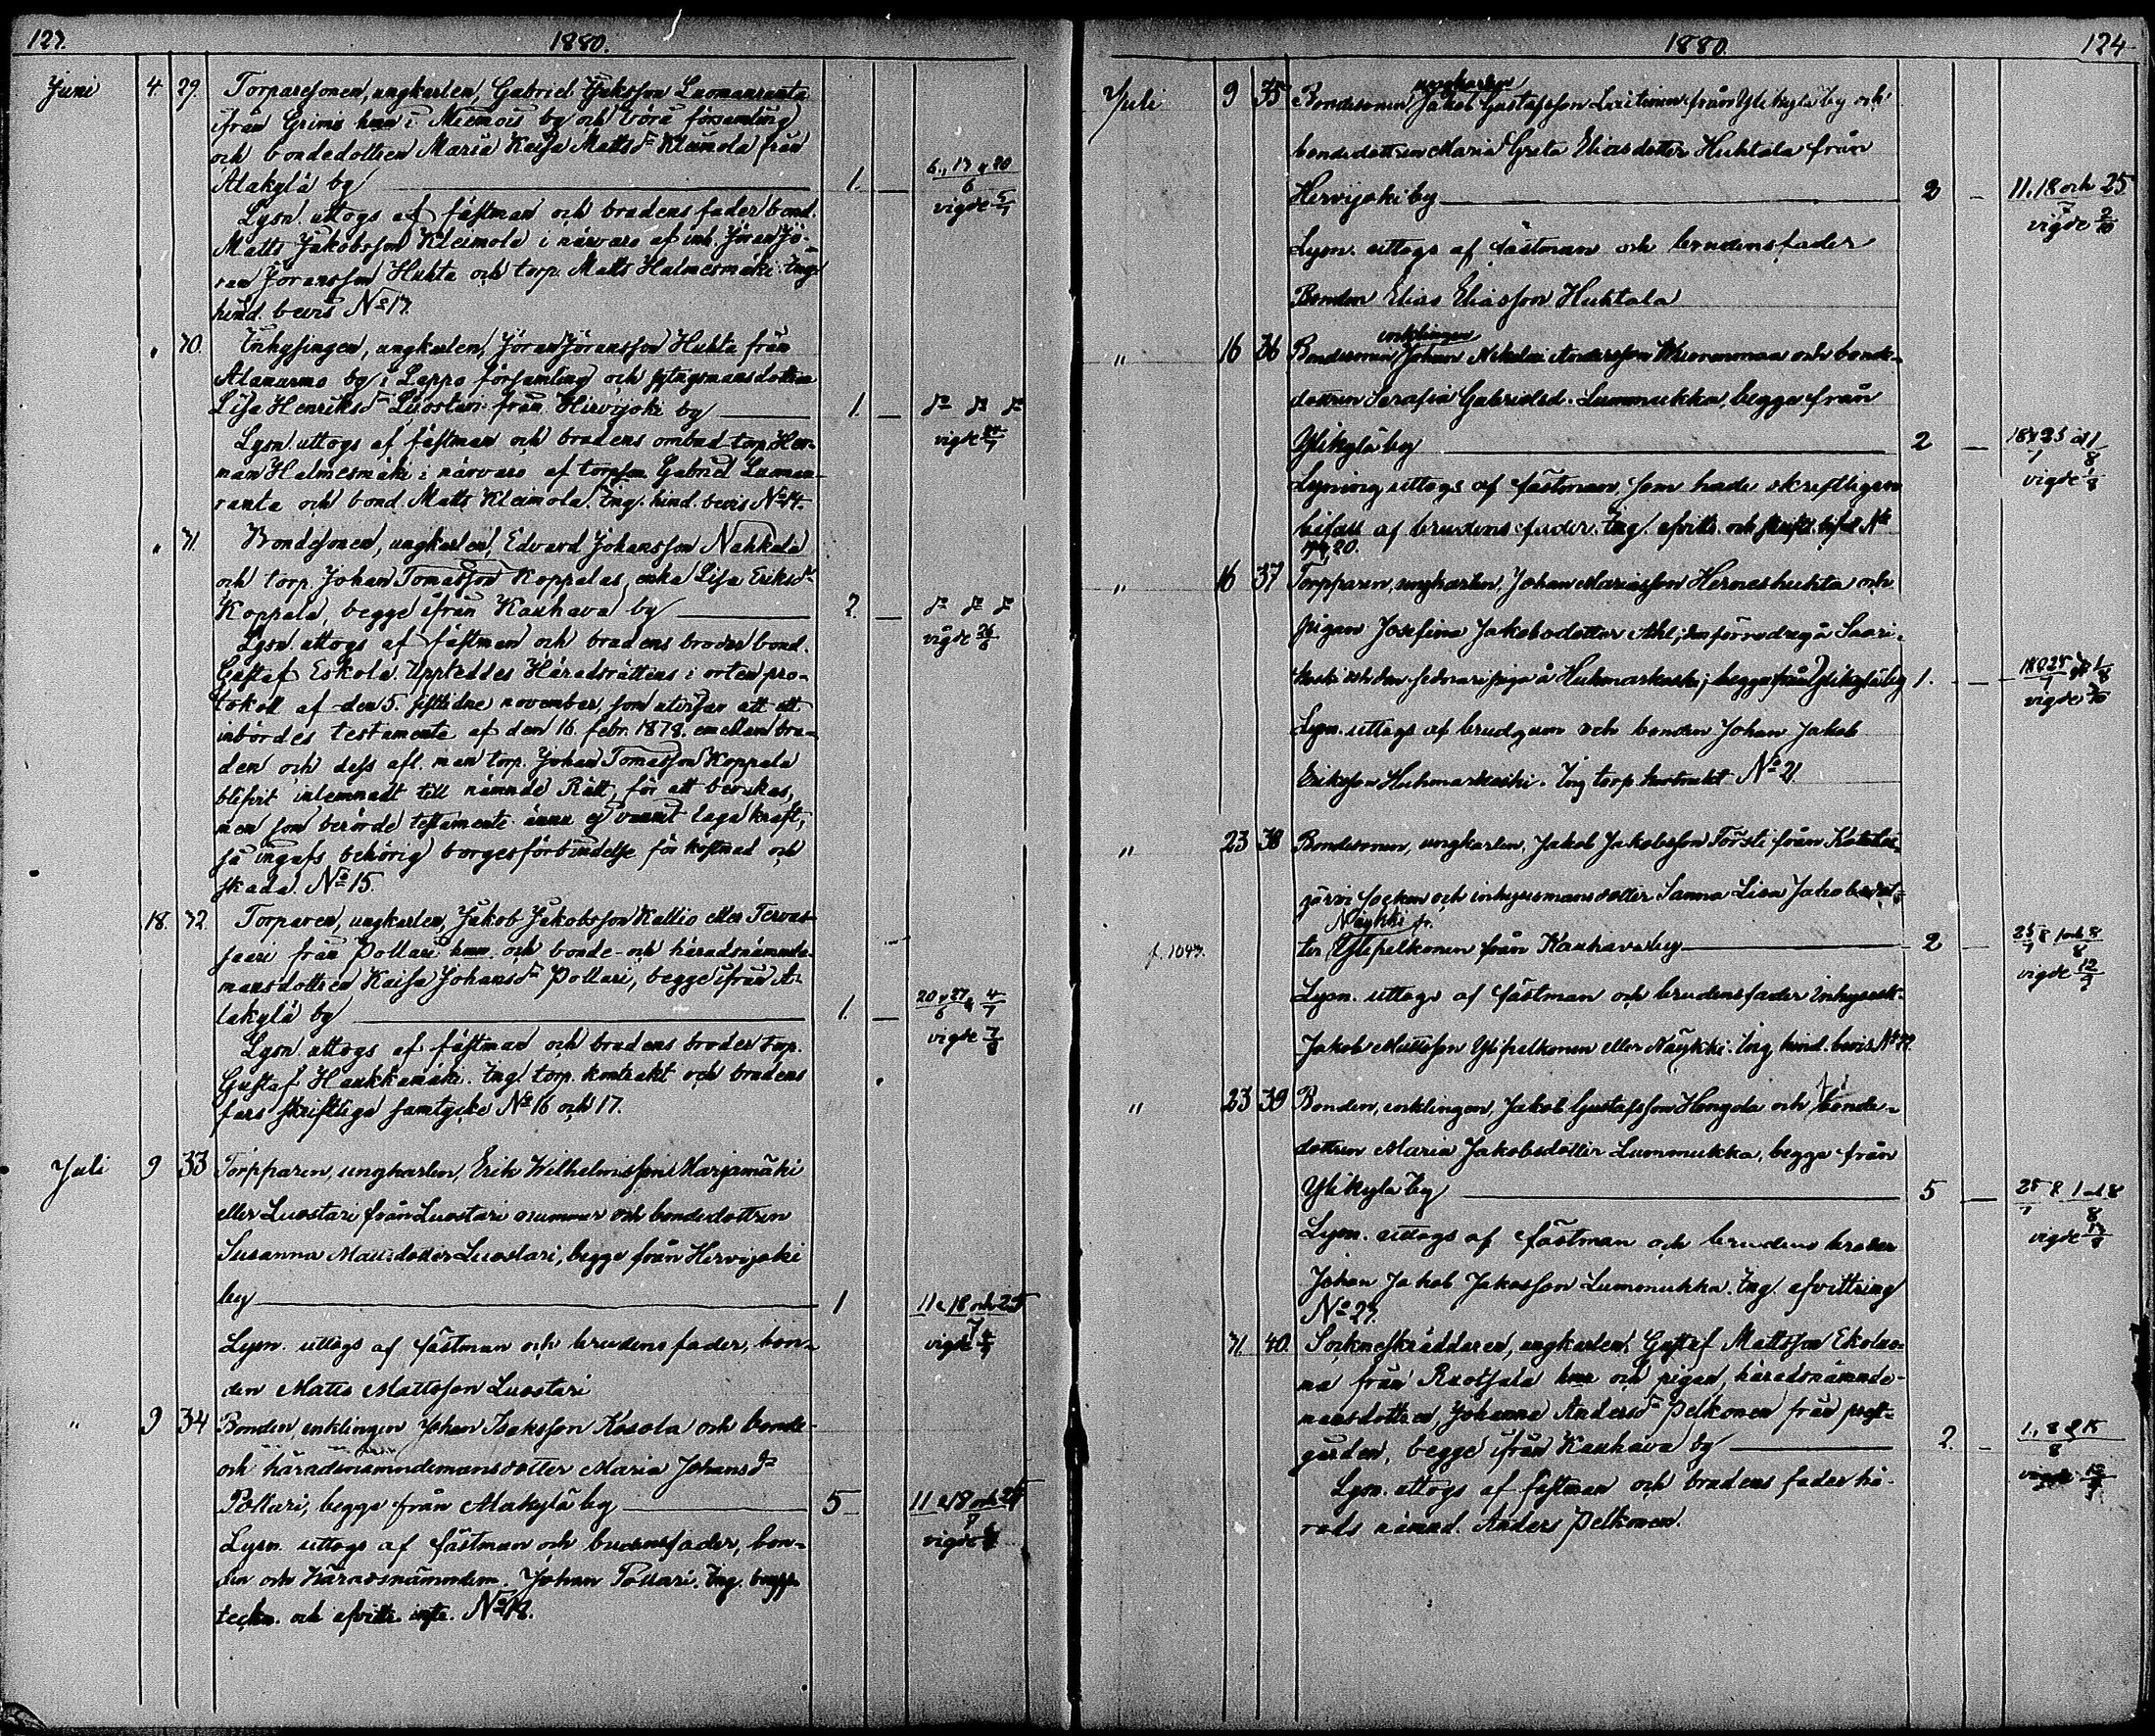 123. 1880.
Juni 4. 29. Torparesonen, ungkarlen, Gabriel Isaksson Luomanranta
ifrån hmn i by och Vörå församling
och bondedottren Maria Kaisa Mattsdr Kleimola från
Alakylä by 1. 6., 13 & 20/6
Lysn. uttogs af fästman och brudens fader bond. vigde 5/7
Matts Jakobsson Kleimola i närvaro af inh. Jöran Jö-
ran Joransson Huhta och torp. Matts Halmesmäki. Ing.
hind. bevis No 13.
" 30. Inhysingen, ungkarlen, Jöran Jöransson Huhta från
Alanurmo by i Lappo församling och
Lisa Henriksdr Luostari från Hirvijoki by 1.
Lysn. uttogs af fästman och brudens ombud torp. Her- vigde
man Halmesmäki i närvaro af torpson Gabriel Luoman-
ranta och bond. Matts Kleimola. Ing. hind. bevis No 14.
" 31. Bondesonen, ungkarlen, Edvard Johansson Nahkala
och torp. Johan Tomasson Koppalas enka Lisa Eriksdr
Koppala, begge ifrån Kauhava by 2.
Lysn. uttogs af fästman och brudens broder bond. vigde
Gustaf Eskola. Uppteddes Häradsrättens i orten pro-
tokoll af den 5. sistlidne november, som utvisar att ett
inbördes testamente af den 16. febr. 1878. emellan bru-
den och dess afl. man torp. Johan Tomasson Koppala
blifvit inlemnadt till nämnde Rätt, för att bevakas,
men som berörde testamente ännu ej vunnit laga kraft,
så ingafs behörig borgesförbindelse för kostnad och
skada. No 15.
18. 32. Torparen, ungkarlen, Jakob Jakobsson Kallio eller Tervas-
saari från Pollari hmn och bonde- och häradsnämnde-
mansdottren Kaisa Johansdr Pollari, begge ifrån A-
lakylä by 1. 20 & 27/6 & 4/7
Lysn. uttogs af fästman och brudens broder torp. vigde 7/8
Gustaf Haukkamäki. Ing. torp. kontrakt och brudens
fars skriftliga samtycke No 16 och 17.
Juli 9 33 Torpparen, ungkarlen, Erik Wilhelmsson Marjamäki
eller Luostari från Luostari nummer och bondedottren
Susanna Mattsdotter Luostari, begge från Hervijoki
by 1 11, 18 och 25/7
Lysn. uttogs af fästman och brudens fader, bon- vigde
den Matts Mattsson Luostari
" 9 34 Bonden enklingen Johan Isaksson Kosola och bonde-
och häradsnämndemansdotter Maria Johansdr
Pollari, begge från Alakylä by 5 11, 18 och 25/7
Lysn. uttogs af fästman och brudens fader, bon- vigde
den och Häradsnämndem. Johan Pollari. Ing.
teckn. och afvittr. inte. No 18.
1880. 124
Juli 9 35 Bondesonen ungkarlen Jakob Gustafsson Laitinen från Ylikylä by och
bondedottren Maria Greta Eliasdotter Huhtala från
Hervijoki by 2 11, 18 och 25/7
Lysn. uttogs af fästman och brudens fader vigde 2/10
Bonden Elias Eliasson Huhtala
" 16 36 Bondesonen enklingen Johan Nikolai Andersson och bonde-
dottren Serafia Gabrielsd. Lummukka, begge från
Ylikylä by 2 18 & 25/7 & 1/8
Lysning uttogs af fästman, som hade skriftligen vigde
bifall af brudens fader. Ing. afvittr. och skriftl. bifall No
19 & 20.
" 16 37 Torpparen, ungkarlen, Johan Mariasson Herneshuhta och
pigan Josefina Jakobsdotter Ahl; den förra Saari-
koski och den sednare piga å Huhmarkoski; begge från Ylikylä by 1. 18 & 25/7 & 1/8
Lysn. uttogs af brudgum och bonden Johan Jakob vigde
Eriksson Huhmarkoski. Ing. torp. kontrakt No 21
" 23 38 Bondesonen, ungkarlen, Jakob Jakobsson Törsti från
järvi socken och inhysesmansdotter Sanna Lisa Jakobsdot-
Näykki fr.
f. 1047. ter Ylipelkonen från Kauhava by 2 25/7 & 1 och 8/8
Lysn. uttogs af fästman och brudens fader Inhyses- vigde 12/9
Jakob Mattsson Ylipelkonen eller Näykki. Ing. hind. bevis No 22.
" 23 39 Bonden, enklingen, Jakob Gustafsson Hongola och bonde-
dottren Maria Jakobsdotter Lummukka, begge från
Ylikylä by 5 25/7 & 1 och 8/8
Lysn. uttogs af fästman och brudens broder vigde
Johan Jakob Jakobsson Lummukka. Ing. afvittring
No 23.
31. 40. Sockneskräddaren, ungkarlen, Gustaf Mattsson Ekoluo-
ma från Ruotsala hmn och pigan, häradsnämnde-
mansdottren, Johanna Andersdr Pelkonen från prest-
gården, begge ifrån Kauhava by 2. 1., 8 & 15/8
Lysn. uttogs af fästman och brudens fader hä- vigde
rads nämnd. Anders Pelkonen.